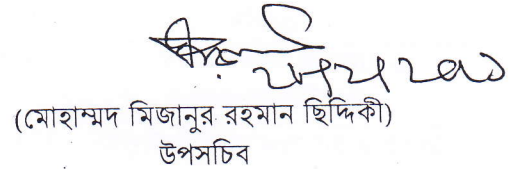 (মোহাম্মদ মিজানুর রহমান ছিদ্দিকী)
উপসচিব